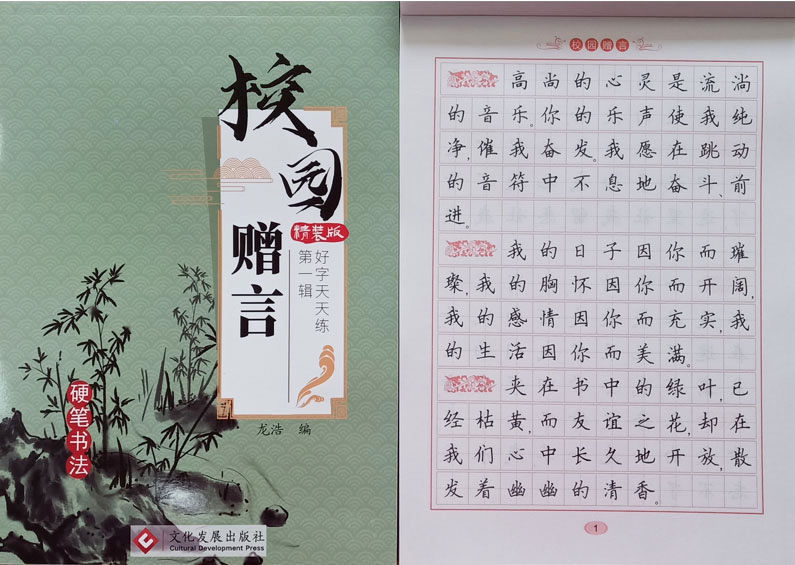 校园
赠言
精装版
好字天天练
第一辑
硬笔书法
龙浩 编
文化发展出版社
Cultural Development Press
校园赠言
高尚的心灵是流淌
的音乐。你的乐声使我纯
净,催我奋发。我愿在跳动
的音符中不息地奋斗、前
进。
我的日子因你而璀
璨,我的胸怀因你而开阔,
我的感情因你而充实,我
的生活因你而美满。
夹在书中的绿叶,已
经枯黄,而友谊之花,却在
我们心中长久地开放,散
发着幽幽的清香。
1